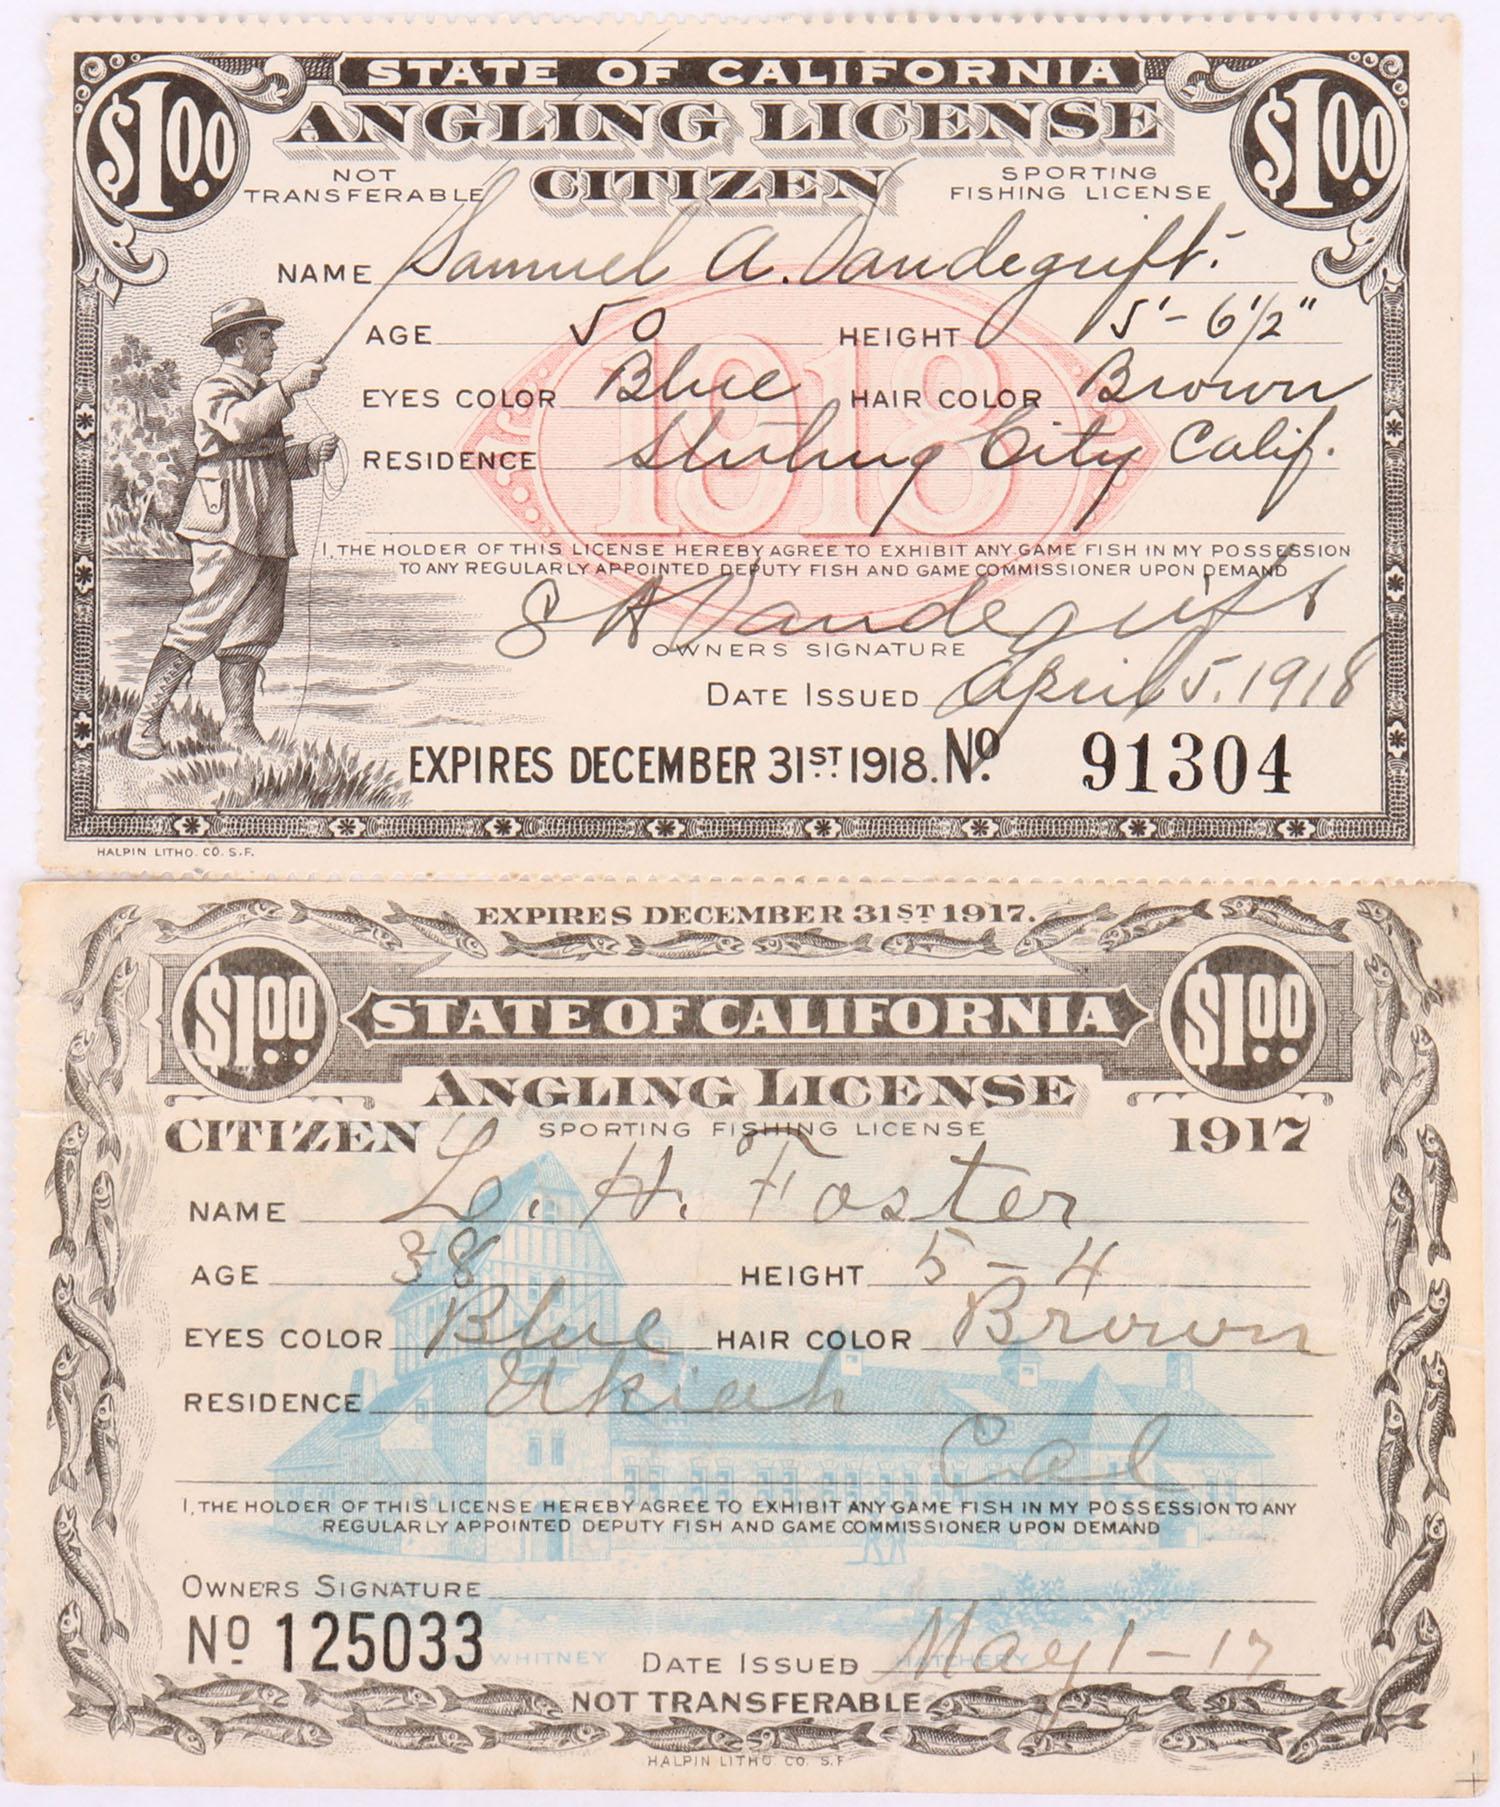 STATE OF CALIFORNIA
$1.00 ANGLING LICENSE $1.00
NOT TRANSFERABLE CITIZEN SPORTING FISHING LICENSE
NAME Samuel A. Vandegrift.
AGE 50 HEIGHT 5'-6 1/2"
EYES COLOR Blue HAIR COLOR Brown
RESIDENCE Stirling City Calif.
1918
I, THE HOLDER OF THIS LICENSE HEREBY AGREE TO EXHIBIT ANY GAME FISH IN MY POSSESSION
TO ANY REGULARLY APPOINTED DEPUTY FISH AND GAME COMMISSIONER UPON DEMAND
S A Vandegrift
OWNERS SIGNATURE
DATE ISSUED April 5. 1918
EXPIRES DECEMBER 31ST 1918. No. 91304
HALPIN LITHO. CO. S.F.
EXPIRES DECEMBER 31ST 1917.
$1.00 STATE OF CALIFORNIA $1.00
ANGLING LICENSE
CITIZEN SPORTING FISHING LICENSE 1917
NAME L. H. Foster
AGE 38 HEIGHT 5-4
EYES COLOR Blue HAIR COLOR Brown
RESIDENCE Ukiah
Cal
I, THE HOLDER OF THIS LICENSE HEREBY AGREE TO EXHIBIT ANY GAME FISH IN MY POSSESSION TO ANY
REGULARLY APPOINTED DEPUTY FISH AND GAME COMMISSIONER UPON DEMAND
OWNERS SIGNATURE
No 125033
WHITNEY HATCHERY
DATE ISSUED May 1-17
NOT TRANSFERABLE
HALPIN LITHO. CO. S.F